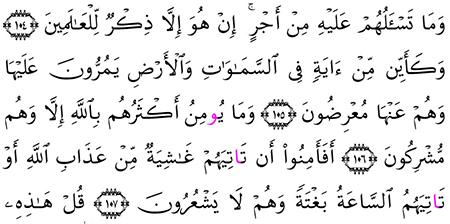 وَمَا تَسْـَٔلُهُمْ عَلَيْهِ مِنْ أَجْرٍ ۚ إِنْ هُوَ إِلَّا ذِكْرٌ لِّلْعَـٰلَمِينَ ﴿١٠٤﴾
وَكَأَيِّن مِّنْ ءَايَةٍ فِى السَّمَـٰوَٰتِ وَالْأَرْضِ يَمُرُّونَ عَلَيْهَا
وَهُمْ عَنْهَا مُعْرِضُونَ ﴿١٠٥﴾ وَمَا يُومِنُ أَكْثَرُهُم بِاللَّهِ إِلَّا وَهُم
مُّشْرِكُونَ ﴿١٠٦﴾ أَفَأَمِنُوا۟ أَن تَاتِيَهُمْ غَـٰشِيَةٌ مِّنْ عَذَابِ اللَّهِ أَوْ
تَاتِيَهُمُ السَّاعَةُ بَغْتَةً وَهُمْ لَا يَشْعُرُونَ ﴿١٠٧﴾ قُلْ هَـٰذِهِۦ